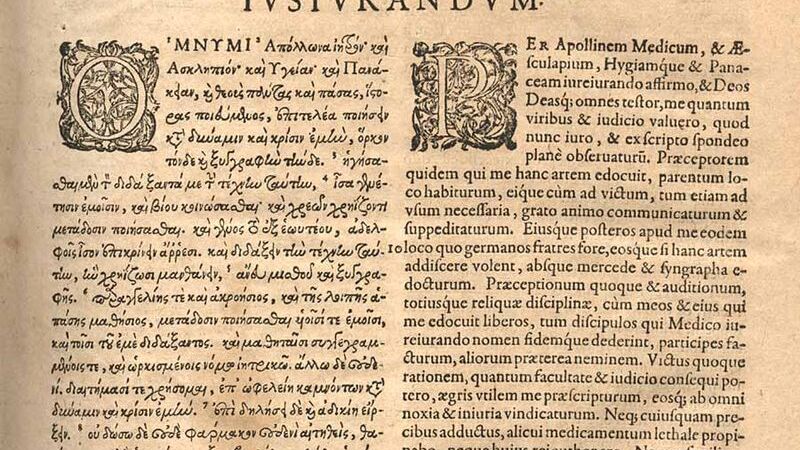 IUSIURANDUM.
ὈΜΝΥΜΙ Ἀπόλλωνα ἰητρὸν καὶ
Ἀσκληπιὸν καὶ Ὑγείαν καὶ Πανά-
κειαν, καὶ θεοὺς πάντας καὶ πάσας, ἵστο-
ρας ποιεύμενος, ἐπιτελέα ποιήσειν
κατὰ δύναμιν καὶ κρίσιν ἐμὴν, ὅρκον
τόνδε καὶ ξυγγραφὴν τήνδε. ἡγήσα-
σθαι μὲν τὸν διδάξαντά με τὴν τέχνην ταύτην, ἴσα γενέ-
τῃσιν ἐμοῖσιν, καὶ βίου κοινώσασθαι, καὶ χρεῶν χρηίζοντι
μετάδοσιν ποιήσασθαι, καὶ γένος τὸ ἐξ ἑωυτέου, ἀδελ-
φοῖς ἴσον ἐπικρίνειν ἄρρεσι. καὶ διδάξειν τὴν τέχνην ταύ-
την, ἢν χρηίζωσι μανθάνειν, ἄνευ μισθοῦ καὶ ξυγγρα-
φῆς. παραγγελίης τε καὶ ἀκροήσιος, καὶ τῆς λοιπῆς ἁ-
πάσης μαθήσιος, μετάδοσιν ποιήσασθαι υἱοῖσί τε ἐμοῖσι,
καὶ τοῖσι τοῦ ἐμὲ διδάξαντος. καὶ μαθηταῖσι συγγεγραμ-
μένοις τε, καὶ ὡρκισμένοις νόμῳ ἰητρικῷ. ἄλλῳ δὲ οὐδε-
νί. διαιτήμασί τε χρήσομαι, ἐπ' ὠφελείῃ καμνόντων κατὰ
δύναμιν καὶ κρίσιν ἐμὴν. ἐπὶ δηλήσει δὲ καὶ ἀδικίῃ εἴρ-
ξειν. οὐ δώσω δὲ οὐδὲ φάρμακον οὐδενὶ αἰτηθεὶς, θα-
10
PER Apollinem Medicum, & Æ-
sculapium, Hygiamque & Pana-
ceam iureiurando affirmo, & Deos
Deasq; omnes testor, me quantum
viribus & iudicio valuero, quod
nunc iuro, & ex scripto spondeo
planè obseruaturū. Præceptorem
quidem qui me hanc artem edocuit, parentum lo-
co habiturum, eique cùm ad victum, tum etiam ad
vsum necessaria, grato animo communicaturum &
suppeditaturum. Eiusque posteros apud me eodem
loco quo germanos fratres fore, eosque si hanc artem
addiscere volent, absque mercede & syngrapha e-
docturum. Præceptionum quoque & auditionum,
totiusque reliquæ disciplinæ, cùm meos & eius qui
me edocuit liberos, tum discipulos qui Medico iu-
reiurando nomen fidemque dederint, participes fa-
cturum, aliorum præterea neminem. Victus quoque
rationem, quantum facultate & iudicio consequi po-
tero, ægris vtilem me præscripturum, eosq; ab omni
noxia & iniuria vindicaturum. Neq; cuiusquam pre-
cibus adductus, alicui medicamentum lethale propi-